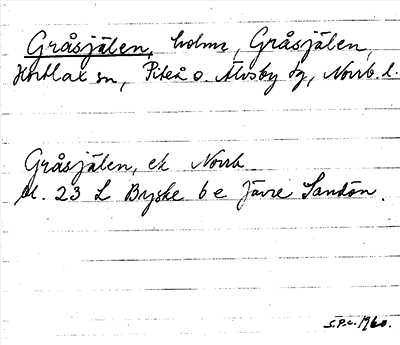 Gråsjälen, holme, Gråsjälen,
Hortlax sn, Piteå o. Älvsby tg, Norrb. l.
Gråsjälen, ek Norrb
bl. 23 L Byske b e Jävre Sandön.
S.P.c. 1960.